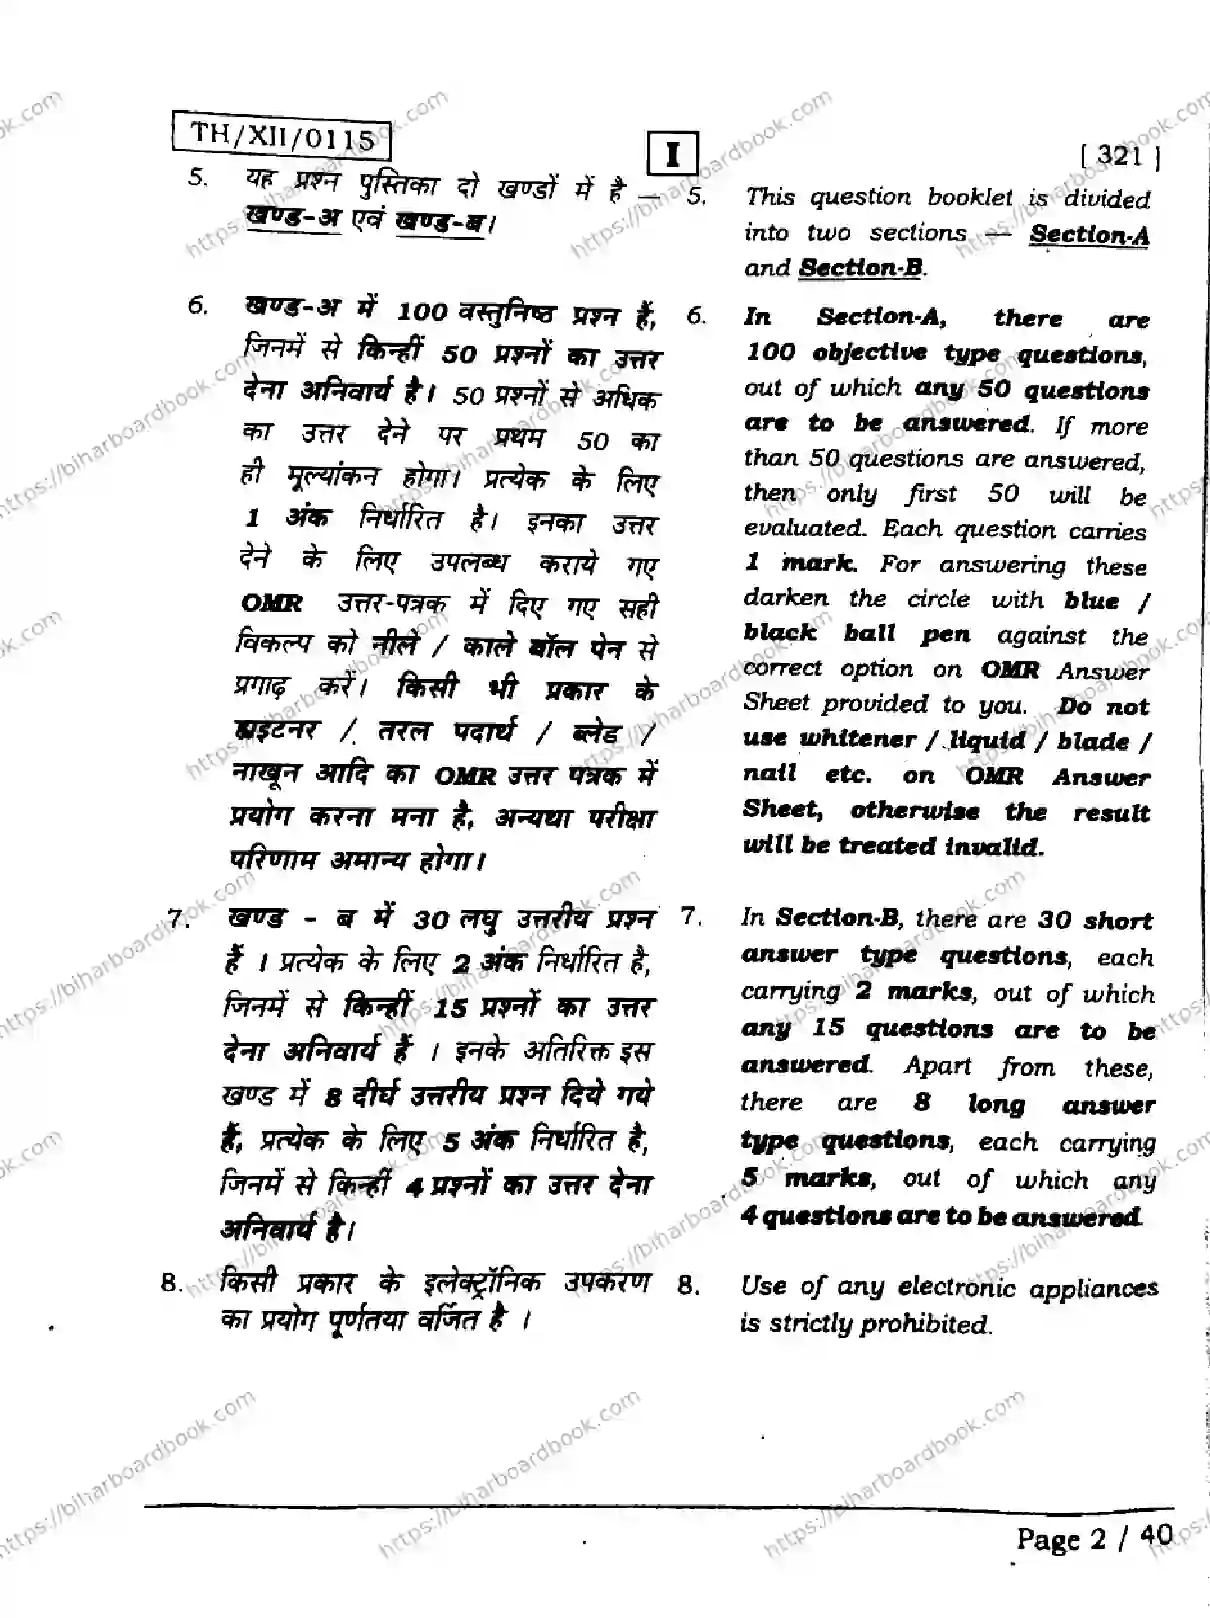 TH/XII/0115
I
[ 321 ]
5. यह प्रश्न पुस्तिका दो खण्डों में है —
खण्ड-अ एवं खण्ड-ब।
6. खण्ड-अ में 100 वस्तुनिष्ठ प्रश्न हैं,
जिनमें से किन्हीं 50 प्रश्नों का उत्तर
देना अनिवार्य है। 50 प्रश्नों से अधिक
का उत्तर देने पर प्रथम 50 का
ही मूल्यांकन होगा। प्रत्येक के लिए
1 अंक निर्धारित है। इनका उत्तर
देने के लिए उपलब्ध कराये गए
OMR उत्तर-पत्रक में दिए गए सही
विकल्प को नीले / काले बॉल पेन से
प्रगाढ़ करें। किसी भी प्रकार के
ह्वाइटनर / तरल पदार्थ / ब्लेड /
नाखून आदि का OMR उत्तर पत्रक में
प्रयोग करना मना है, अन्यथा परीक्षा
परिणाम अमान्य होगा।
7. खण्ड - ब में 30 लघु उत्तरीय प्रश्न
हैं । प्रत्येक के लिए 2 अंक निर्धारित है,
जिनमें से किन्हीं 15 प्रश्नों का उत्तर
देना अनिवार्य हैं । इनके अतिरिक्त इस
खण्ड में 8 दीर्घ उत्तरीय प्रश्न दिये गये
हैं, प्रत्येक के लिए 5 अंक निर्धारित है,
जिनमें से किन्हीं 4 प्रश्नों का उत्तर देना
अनिवार्य है।
8. किसी प्रकार के इलेक्ट्रॉनिक उपकरण
का प्रयोग पूर्णतया वर्जित है ।
5. This question booklet is divided
into two sections — Section-A
and Section-B.
6. In Section-A, there are
100 objective type questions,
out of which any 50 questions
are to be answered. If more
than 50 questions are answered,
then only first 50 will be
evaluated. Each question carries
1 mark. For answering these
darken the circle with blue /
black ball pen against the
correct option on OMR Answer
Sheet provided to you. Do not
use whitener / liquid / blade /
nail etc. on OMR Answer
Sheet, otherwise the result
will be treated invalid.
7. In Section-B, there are 30 short
answer type questions, each
carrying 2 marks, out of which
any 15 questions are to be
answered. Apart from these,
there are 8 long answer
type questions, each carrying
5 marks, out of which any
4 questions are to be answered.
8. Use of any electronic appliances
is strictly prohibited.
Page 2 / 40
https://biharboardbook.com